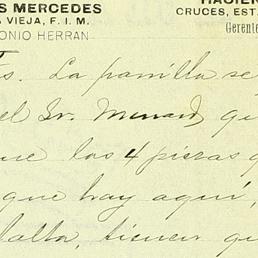 S MERCEDES
VIEJA, F. I. M.
ONIO HERRAN
HACIEN
CRUCES, EST.
Gerente
La parrilla se
el Sr. Menard, qu
que las 4 piezas q
que hay aquí,
falta, tienen qu